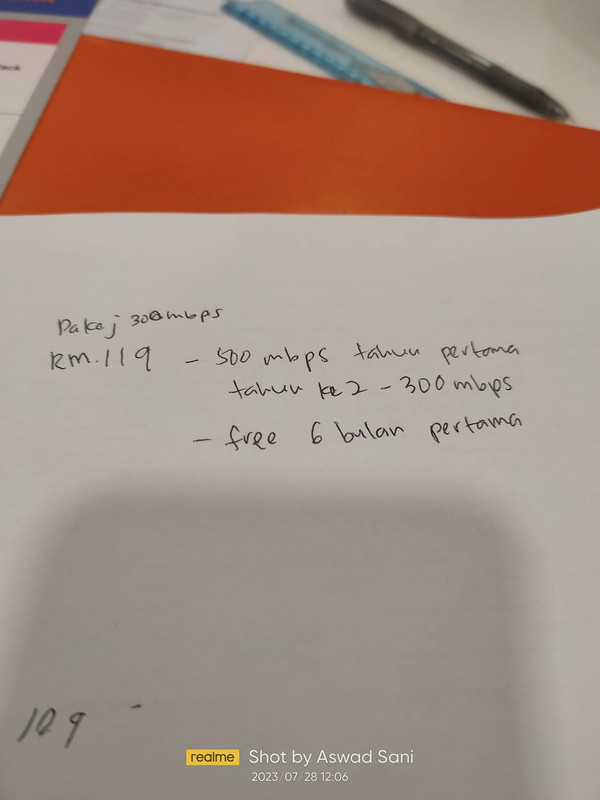 ack
Pakej 300mbps
RM.119 - 500 mbps tahun pertama
tahun ke 2 - 300 mbps
- free 6 bulan pertama
129 -
realme Shot by Aswad Sani
2023/07/28 12:06